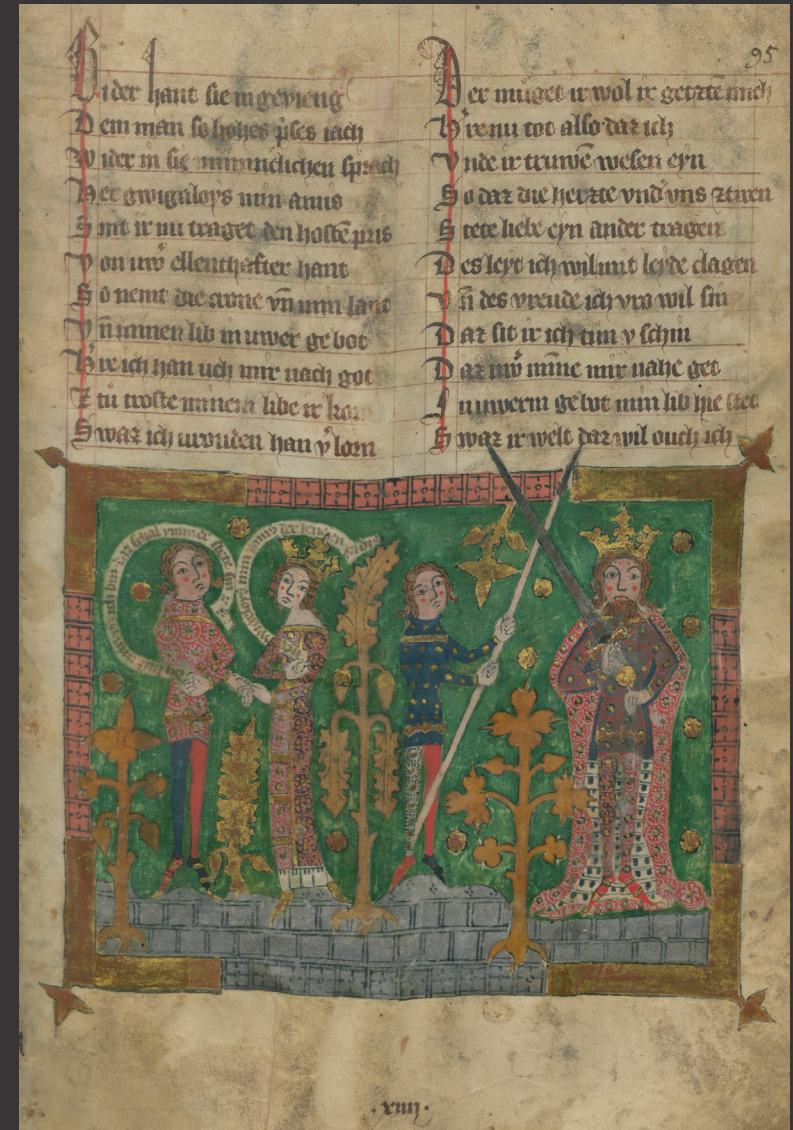 95
Bi der hant sie in gevieng
Dem man so hohes p͛ses iach
Wider in sie minnichchen sprach
Her gwigaloys min amis
Sint ir nu traget den hostē pris
Von uw͛ ellenthafter hant
So nemt die crone vn̄ min lant
Vn̄ minen lib in uwer gebot
H͛re ich han uch mir nach got
Ztu troste minem libe ir
Swaz ich vrouden han v͛lorn
Der muget ir wol ir getztē mich
H͛re nu tot also daz ich
Vnde ir truwē wesen eyn
So daz die hertze vnd͛ vns ztwen
Stete liebe eyn ander tragen
Des leyt ich wil mit leyde clagen
Vn̄ des vreude ich vro wil sin
Daz sit ir ich bin v schin
Daz uw͛ mīne mir nahe get
In uwerm gebot min lib hie stet
Swaz ir welt daz wil ouch ich
ich bin daz schal ymmer stete
min
xiiij